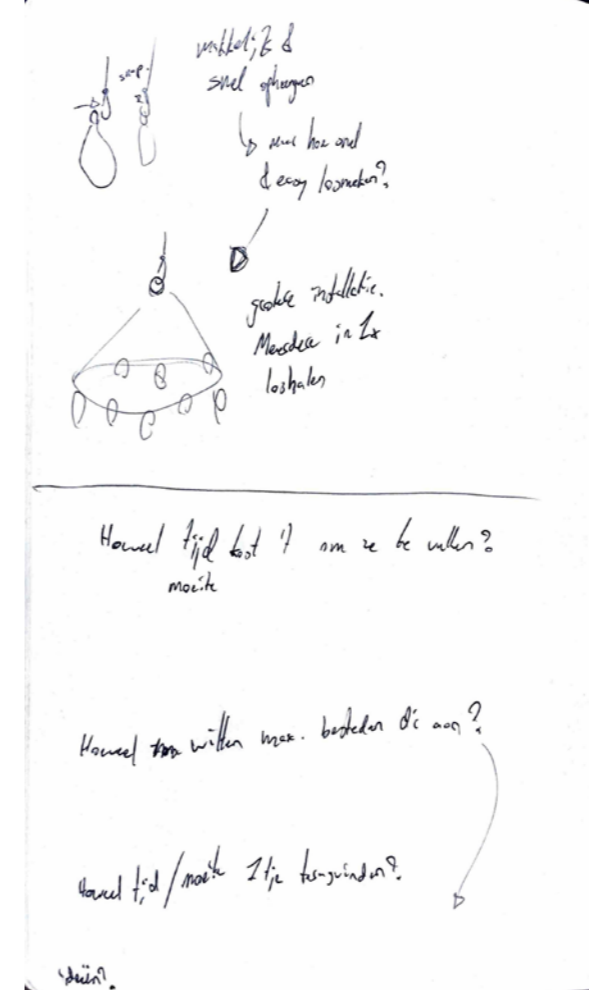 makkelijk &
snel ophangen
snap.
maar hoe snel
& easy losmaken?
grotere installatie.
Meerdere in 1x
loshalen
Hoeveel tijd kost 't om ze te vullen?
moeite
Hoeveel willen max. besteden die aan?
Hoeveel tijd/moeite 1tje terugvinden?
ideeën?